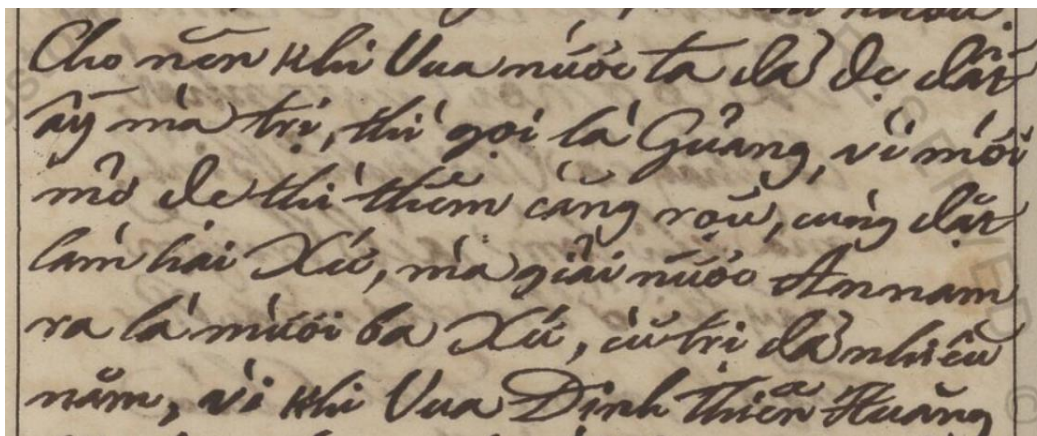 Cho nên khi Vua nước ta đã dẹ đất
ấy mà trị, thì gọi là Quảng, vì mới
mở de thì thêm càng rộũ, cùng đặt
làm hai Xứ, mà giải nước Annam
ra là mười ba Xứ, cũ trị đã nhiều
năm, vì khi Vua Đinh thiên Huâng